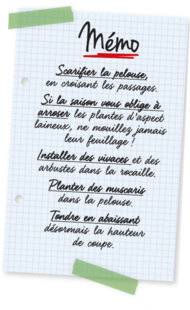 Mémo
Scarifier la pelouse,
en croisant les passages.
Si la saison vous oblige à
arroser les plantes d'aspect
laineux, ne mouillez jamais
leur feuillage !
Installer des vivaces et des
arbustes dans la rocaille.
Planter des muscaris
dans la pelouse.
Tondre en abaissant
désormais la hauteur
de coupe.